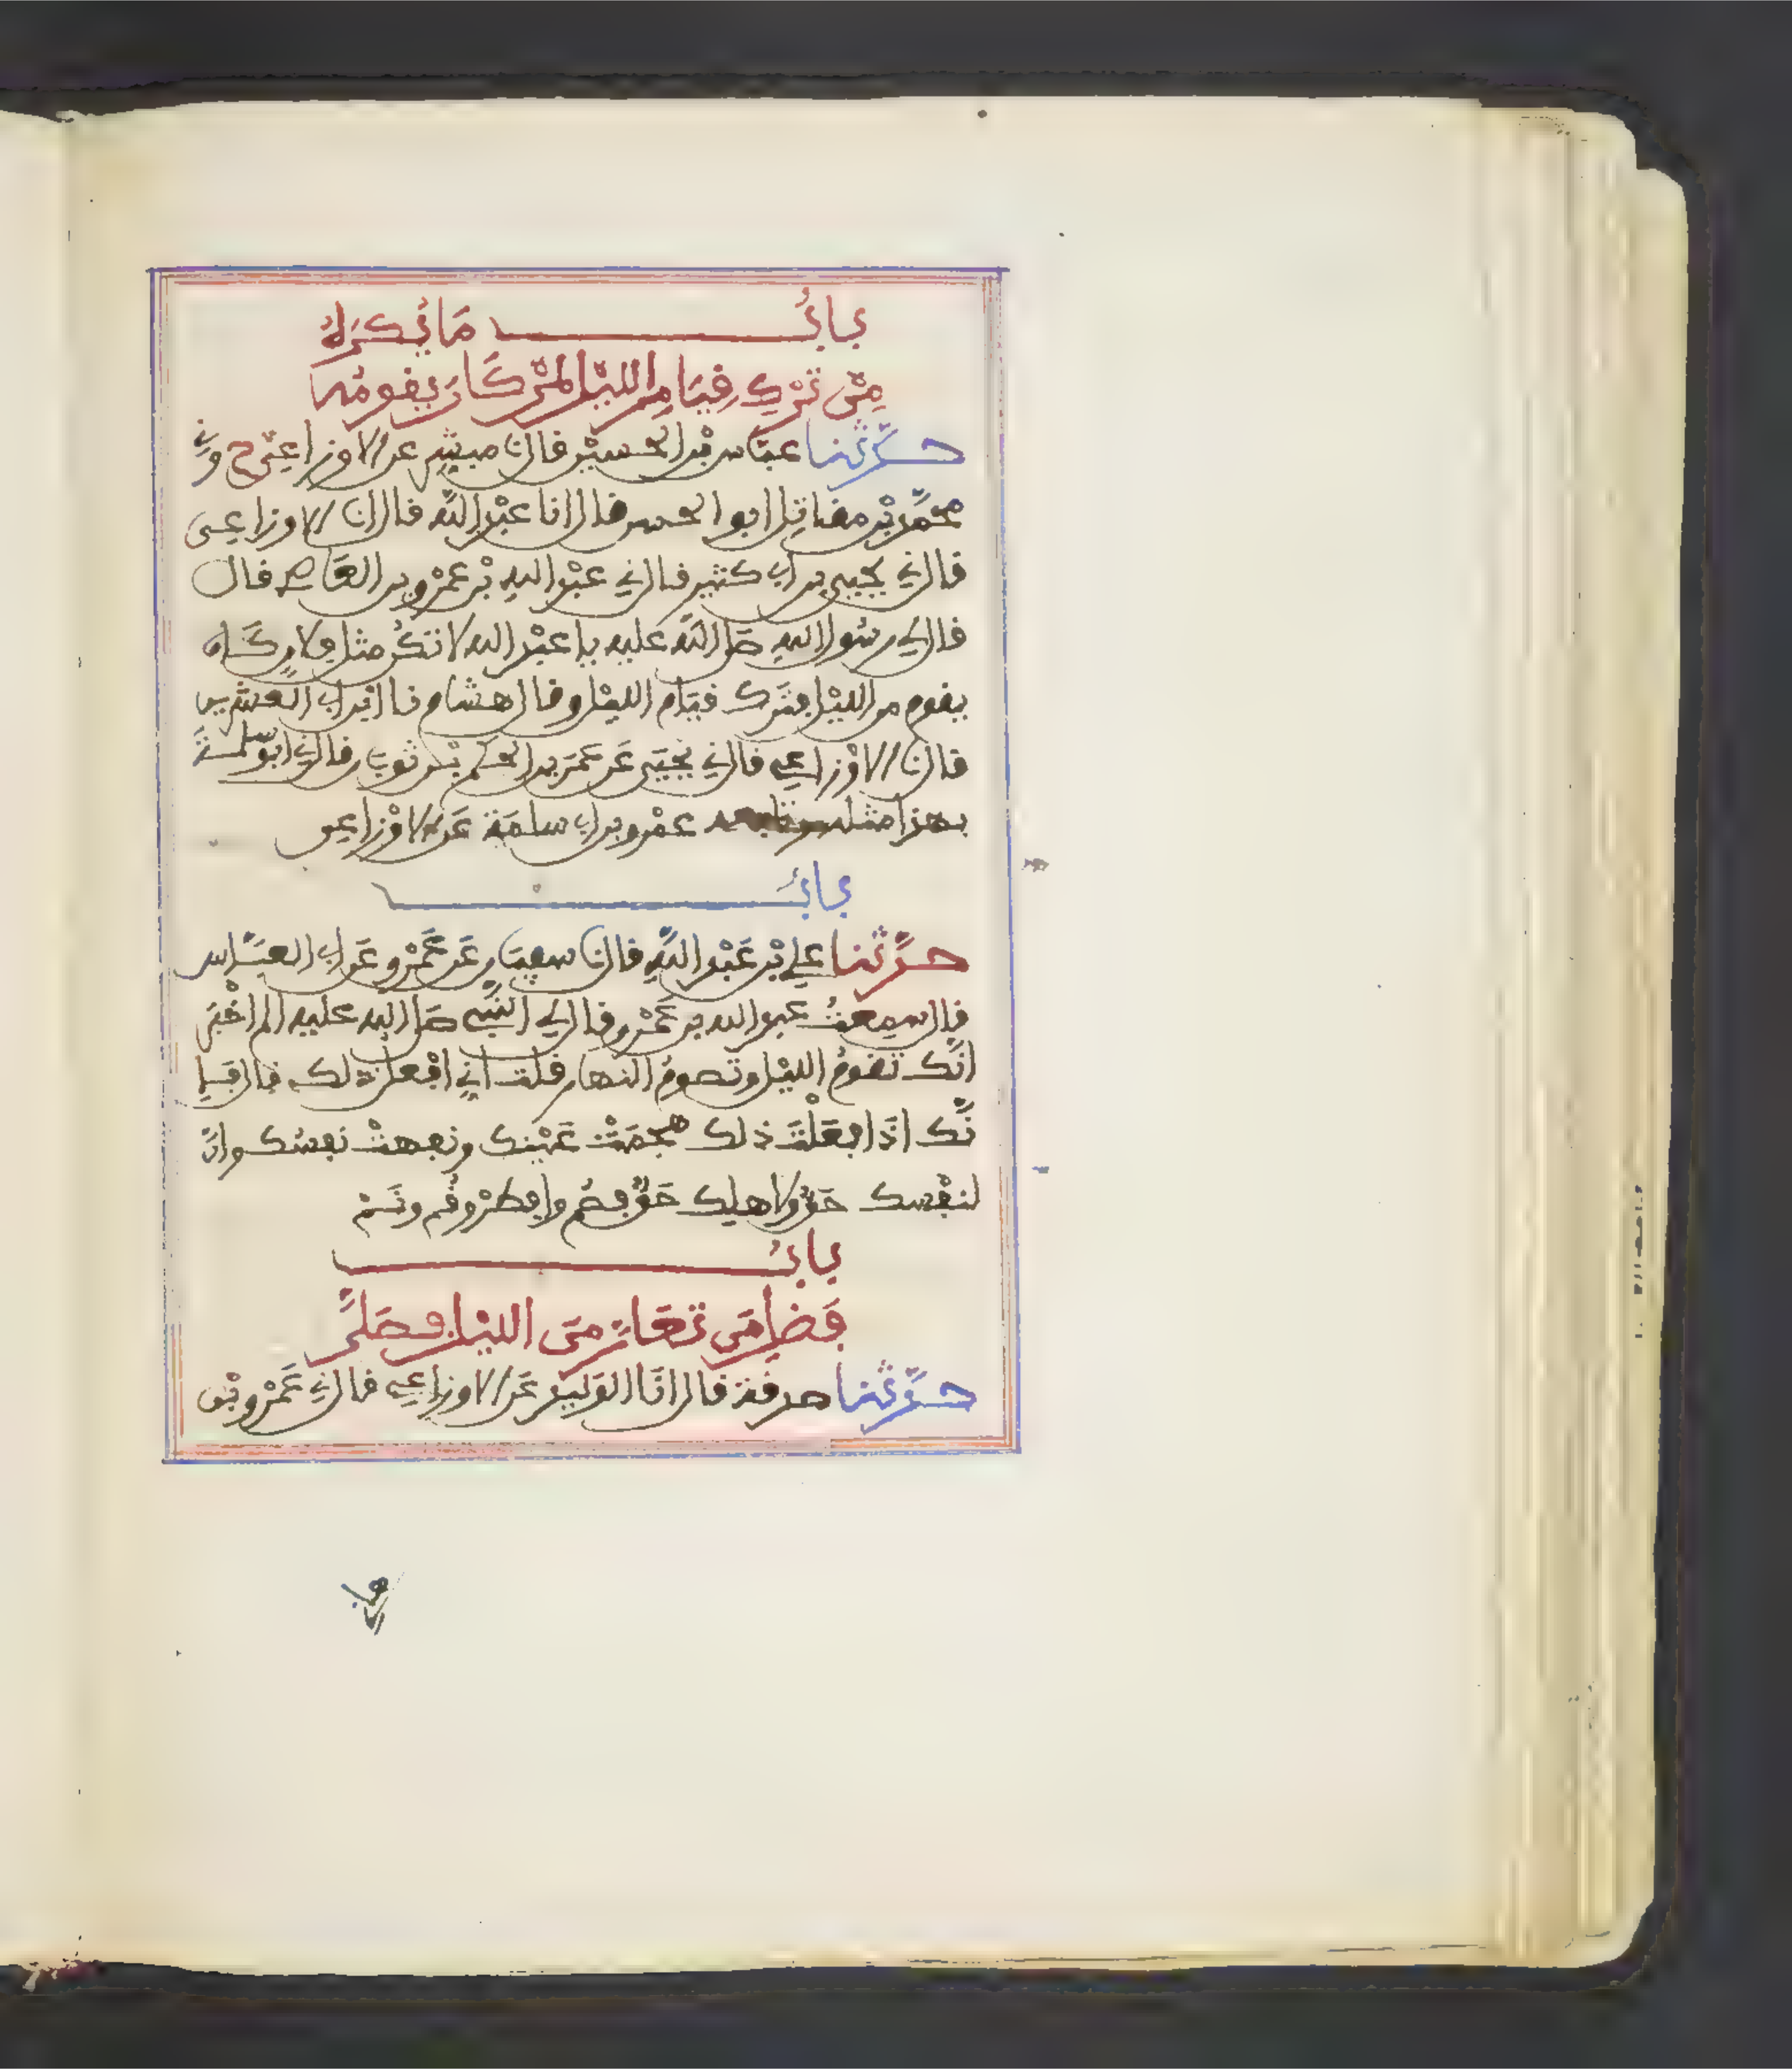 بابُ مَا يُكرَهُ
مِنْ تَرْكِ قِيَامِ الليْلِ لمَنْ كَانَ يقومُه
حدَّثنا عبّاس بْن الحسيْن قال نا مبشّر عن الاوزاعِيّ ح وني
محمّد بْن مقاتل ابو الحسن قال انا عبْد اللّه قال انا الاوزاعي
قال ني يحيى بن ابي كثير قال ني عبْد الله بْن عمْرو بن العَاص قال
قال لي رسُول الله صَلى اللّه عليه يا عبْد الله لا تكُن مثل فلانٍ كَان
يقوم من الليْل فتَرك قيَام الليْل وقال هشام نا ابن ابي العشرين
قال نا الاوْزاعي قال ني يحْيَى عَن عمَر بن الحكَم بْن ثوبان قال ني ابو سلمَة
بهذا مثله وتابعه عمْرو بن ابي سلمَة عَن الاوْزاعي
بابُ
حدَّثنا علي بْن عَبْد اللّهِ قال نا سفيَان عَن عَمْرو عَن ابي العبَّاس
قال سمِعتُ عبد الله بن عَمْرو قال لي النّبي صَلى الله عليه الم اخْبَر
انّك تقومُ الليْل وتصومُ النهار قلت اني افْعل ذلك قال فإ
نّك اذَا فعَلْتَ ذلك هجمَتْ عَيْنك ونفهتْ نفسُك وانّ
لنفْسك حَقٌّ ولاهلِك حَقٌّ فصُم وافطرْ وقُم ونَمْ
بابُ
فَضلِ مَن تعَارّ منَ الليْل فصَلّى
حدَّثنا صدقة قال انَا الوَليد عَن الاوزاعي قال ني عَمْرو بْن